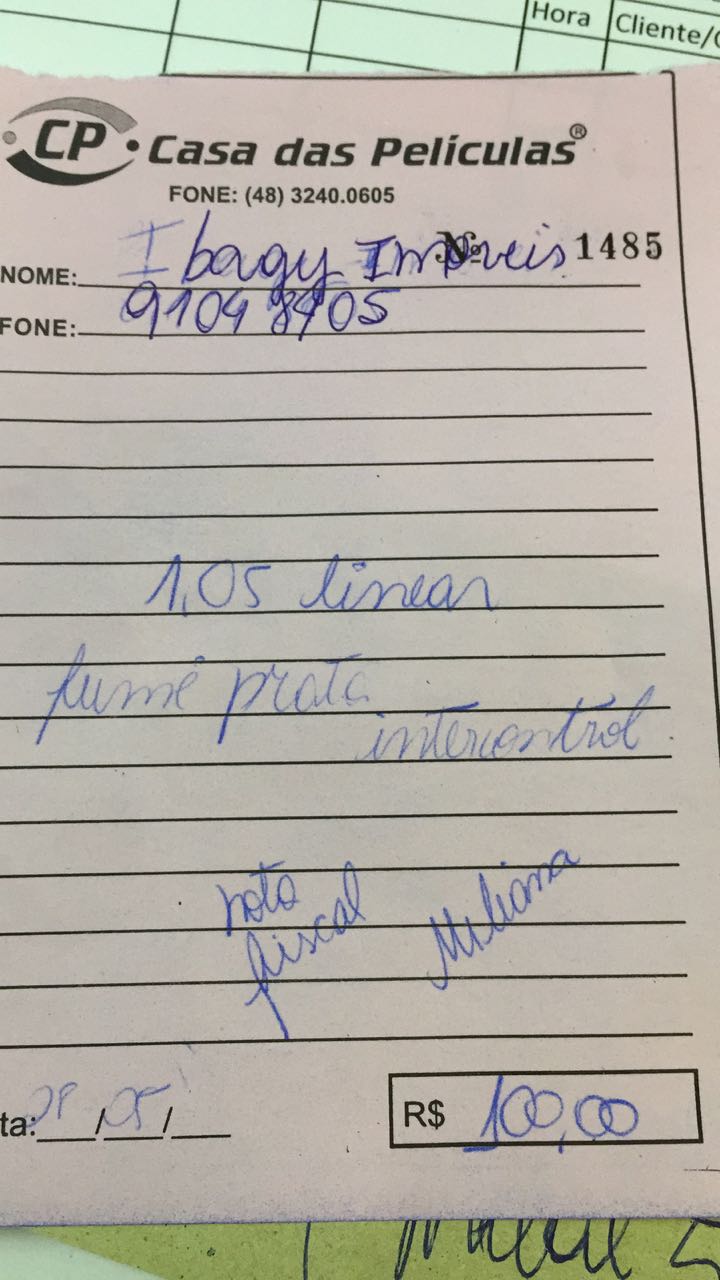 Hora Cliente/
CP Casa das Películas®
FONE: (48) 3240.0605
Nº 1485
NOME: Ibagy Imóveis
FONE: 9104 8405
1,05 linear
fumê prata
intercontrol
nota
fiscal
ta: / 05 /
R$ 100,00